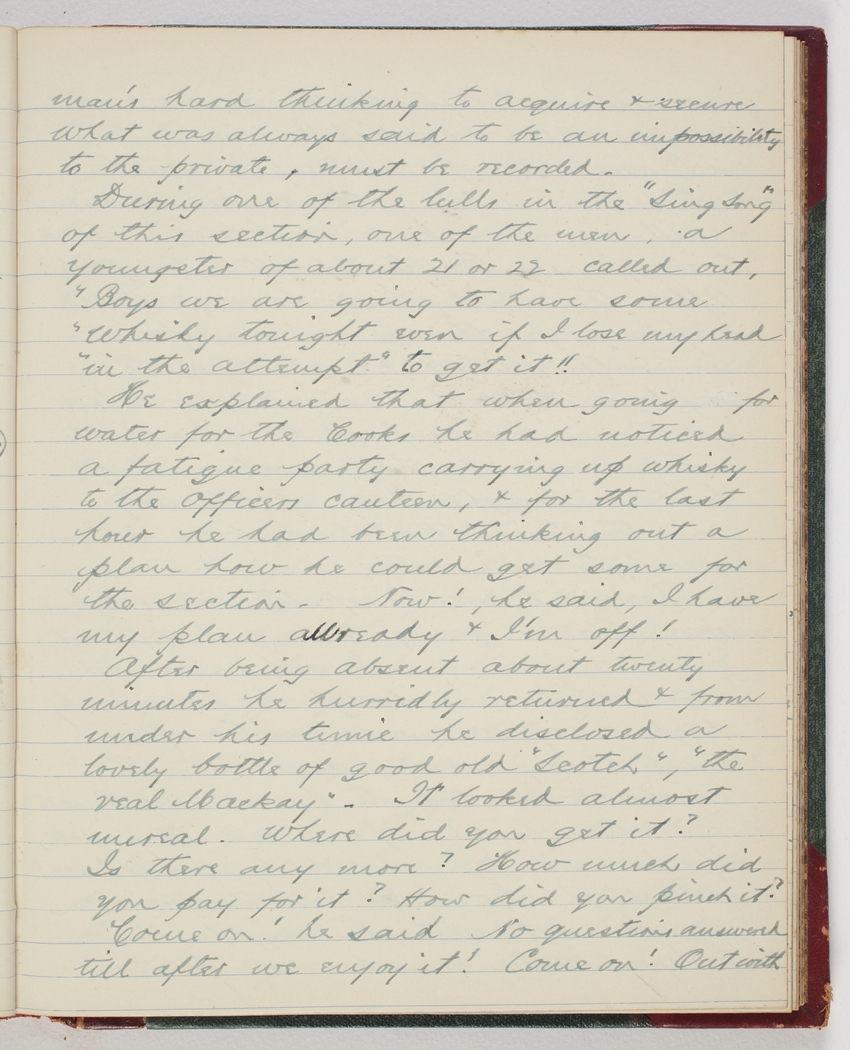 man's hard thinking to acquire & secure
what was always said to be an impossibility
to the private, must be recorded.
During one of the lulls in the "Sing Song"
of this section, one of the men, a
youngster of about 21 or 22 called out,
"Boys we are going to have some
"Whisky tonight even if I lose my head
"in the attempt" to get it!!
He explained that when going for
water for the Cooks he had noticed
a fatigue party carrying up whisky
to the Officers canteen, & for the last
hour he had been thinking out a
plan how he could get some for
the section. Now!, he said, I have
my plan allready & I'm off!
After being absent about twenty
minutes he hurridly returned & from
under his tunic he disclosed a
lovely bottle of good old "Scotch", "the
real Mackay". It looked almost
unreal. Where did you get it?
Is there any more? How much did
you pay for it? How did you pinch it?
Come on! he said No questions answered
till after we enjoy it! Come on! Out with